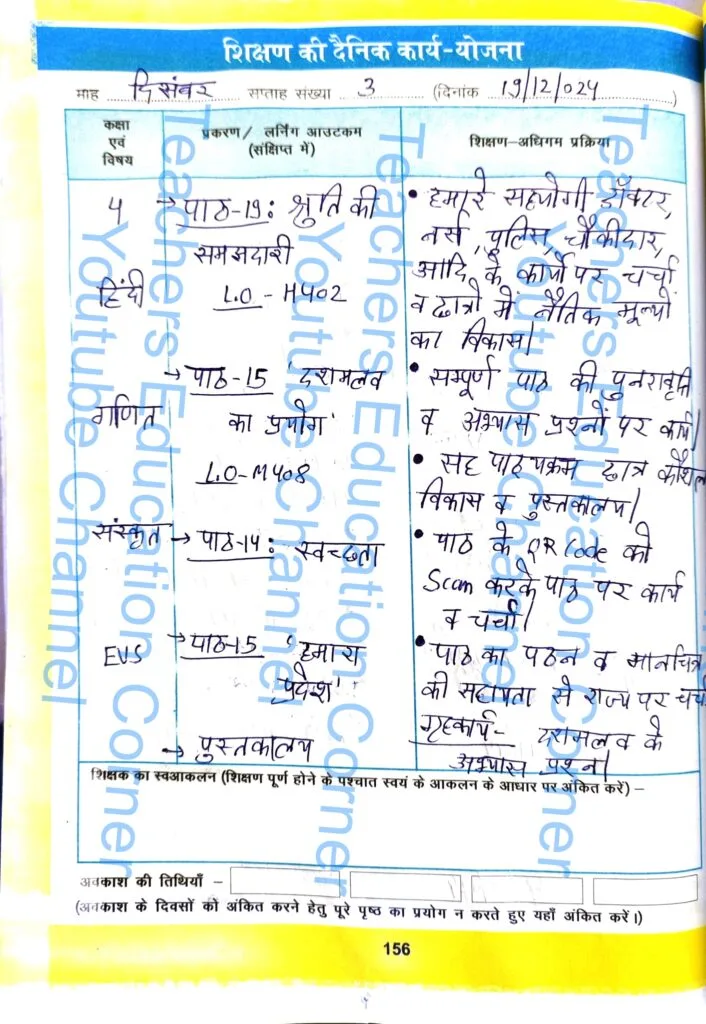 शिक्षण की दैनिक कार्य-योजना
माह दिसंबर सप्ताह संख्या 3 (दिनांक 19/12/024)
कक्षा एवं विषय
प्रकरण/ लर्निंग आउटकम (संक्षिप्त में)
शिक्षण-अधिगम प्रक्रिया
4
हिंदी
→ पाठ-19: श्रुति की
समझदारी
L.O - H402
• हमारे सहयोगी डॉक्टर,
नर्स, पुलिस, चौकीदार,
आदि के कार्यों पर चर्चा
व छात्रो में नैतिक मूल्यों
का विकास।
गणित
→ पाठ-15 'दशमलव
का प्रयोग'
L.O-M408
• सम्पूर्ण पाठ की पुनरावृत्ति
व अभ्यास प्रश्नों पर कार्य।
• सह पाठ्यक्रम छात्र कौशल
विकास व पुस्तकालय।
संस्कृत
→ पाठ-14: स्वच्छता
• पाठ के QR Code को
Scan करके पाठ पर कार्य
व चर्चा।
EVS
→ पाठ-15 'हमारा
प्रदेश'
• पाठ का पठन व मानचित्र
की सहायता से राज्य पर चर्चा
→ पुस्तकालय
गृहकार्य- दशमलव के
अभ्यास प्रश्न।
शिक्षक का स्वआकलन (शिक्षण पूर्ण होने के पश्चात स्वयं के आकलन के आधार पर अंकित करें) –
अवकाश की तिथियाँ –
(अवकाश के दिवसों को अंकित करने हेतु पूरे पृष्ठ का प्रयोग न करते हुए यहाँ अंकित करें।)
156
Teachers Education Corner
Youtube Channel
Teachers Education Corner
Youtube Channel
Teachers Education Corner
Youtube Channel